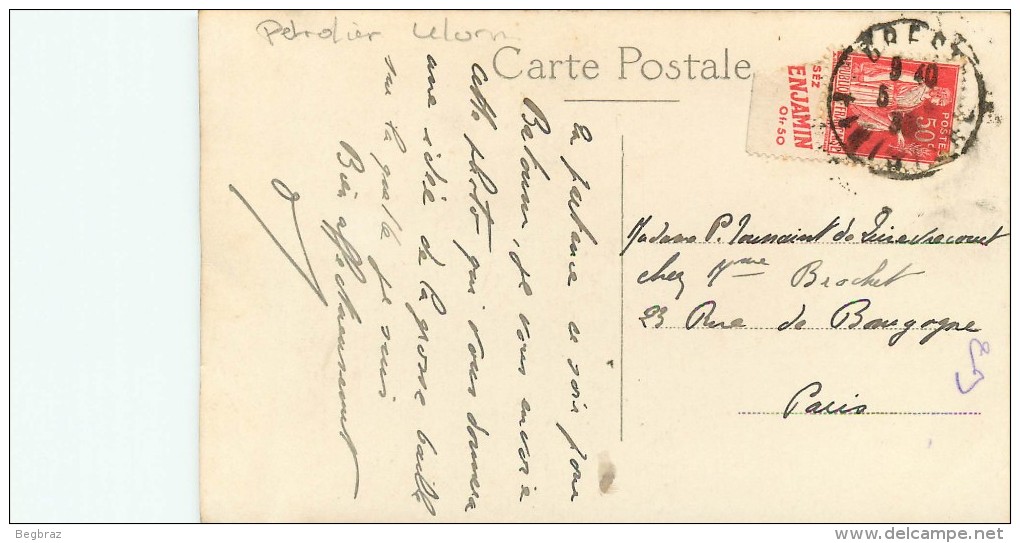 Pétrolier
Carte Postale
SEZ
ENJAMIN
0fr50
POSTES
50c
BREST
9 40
En partance ce soir pour
Batoum, je vous envoie
cette photo qui vous donnera
une idée de la grosse baille
sur laquelle je suis
Bien affectueusement
Madame P. Toussaint de
chez Mme Brochet
23 Rue de Bourgogne
Paris
Begbraz
www.delcampe.net